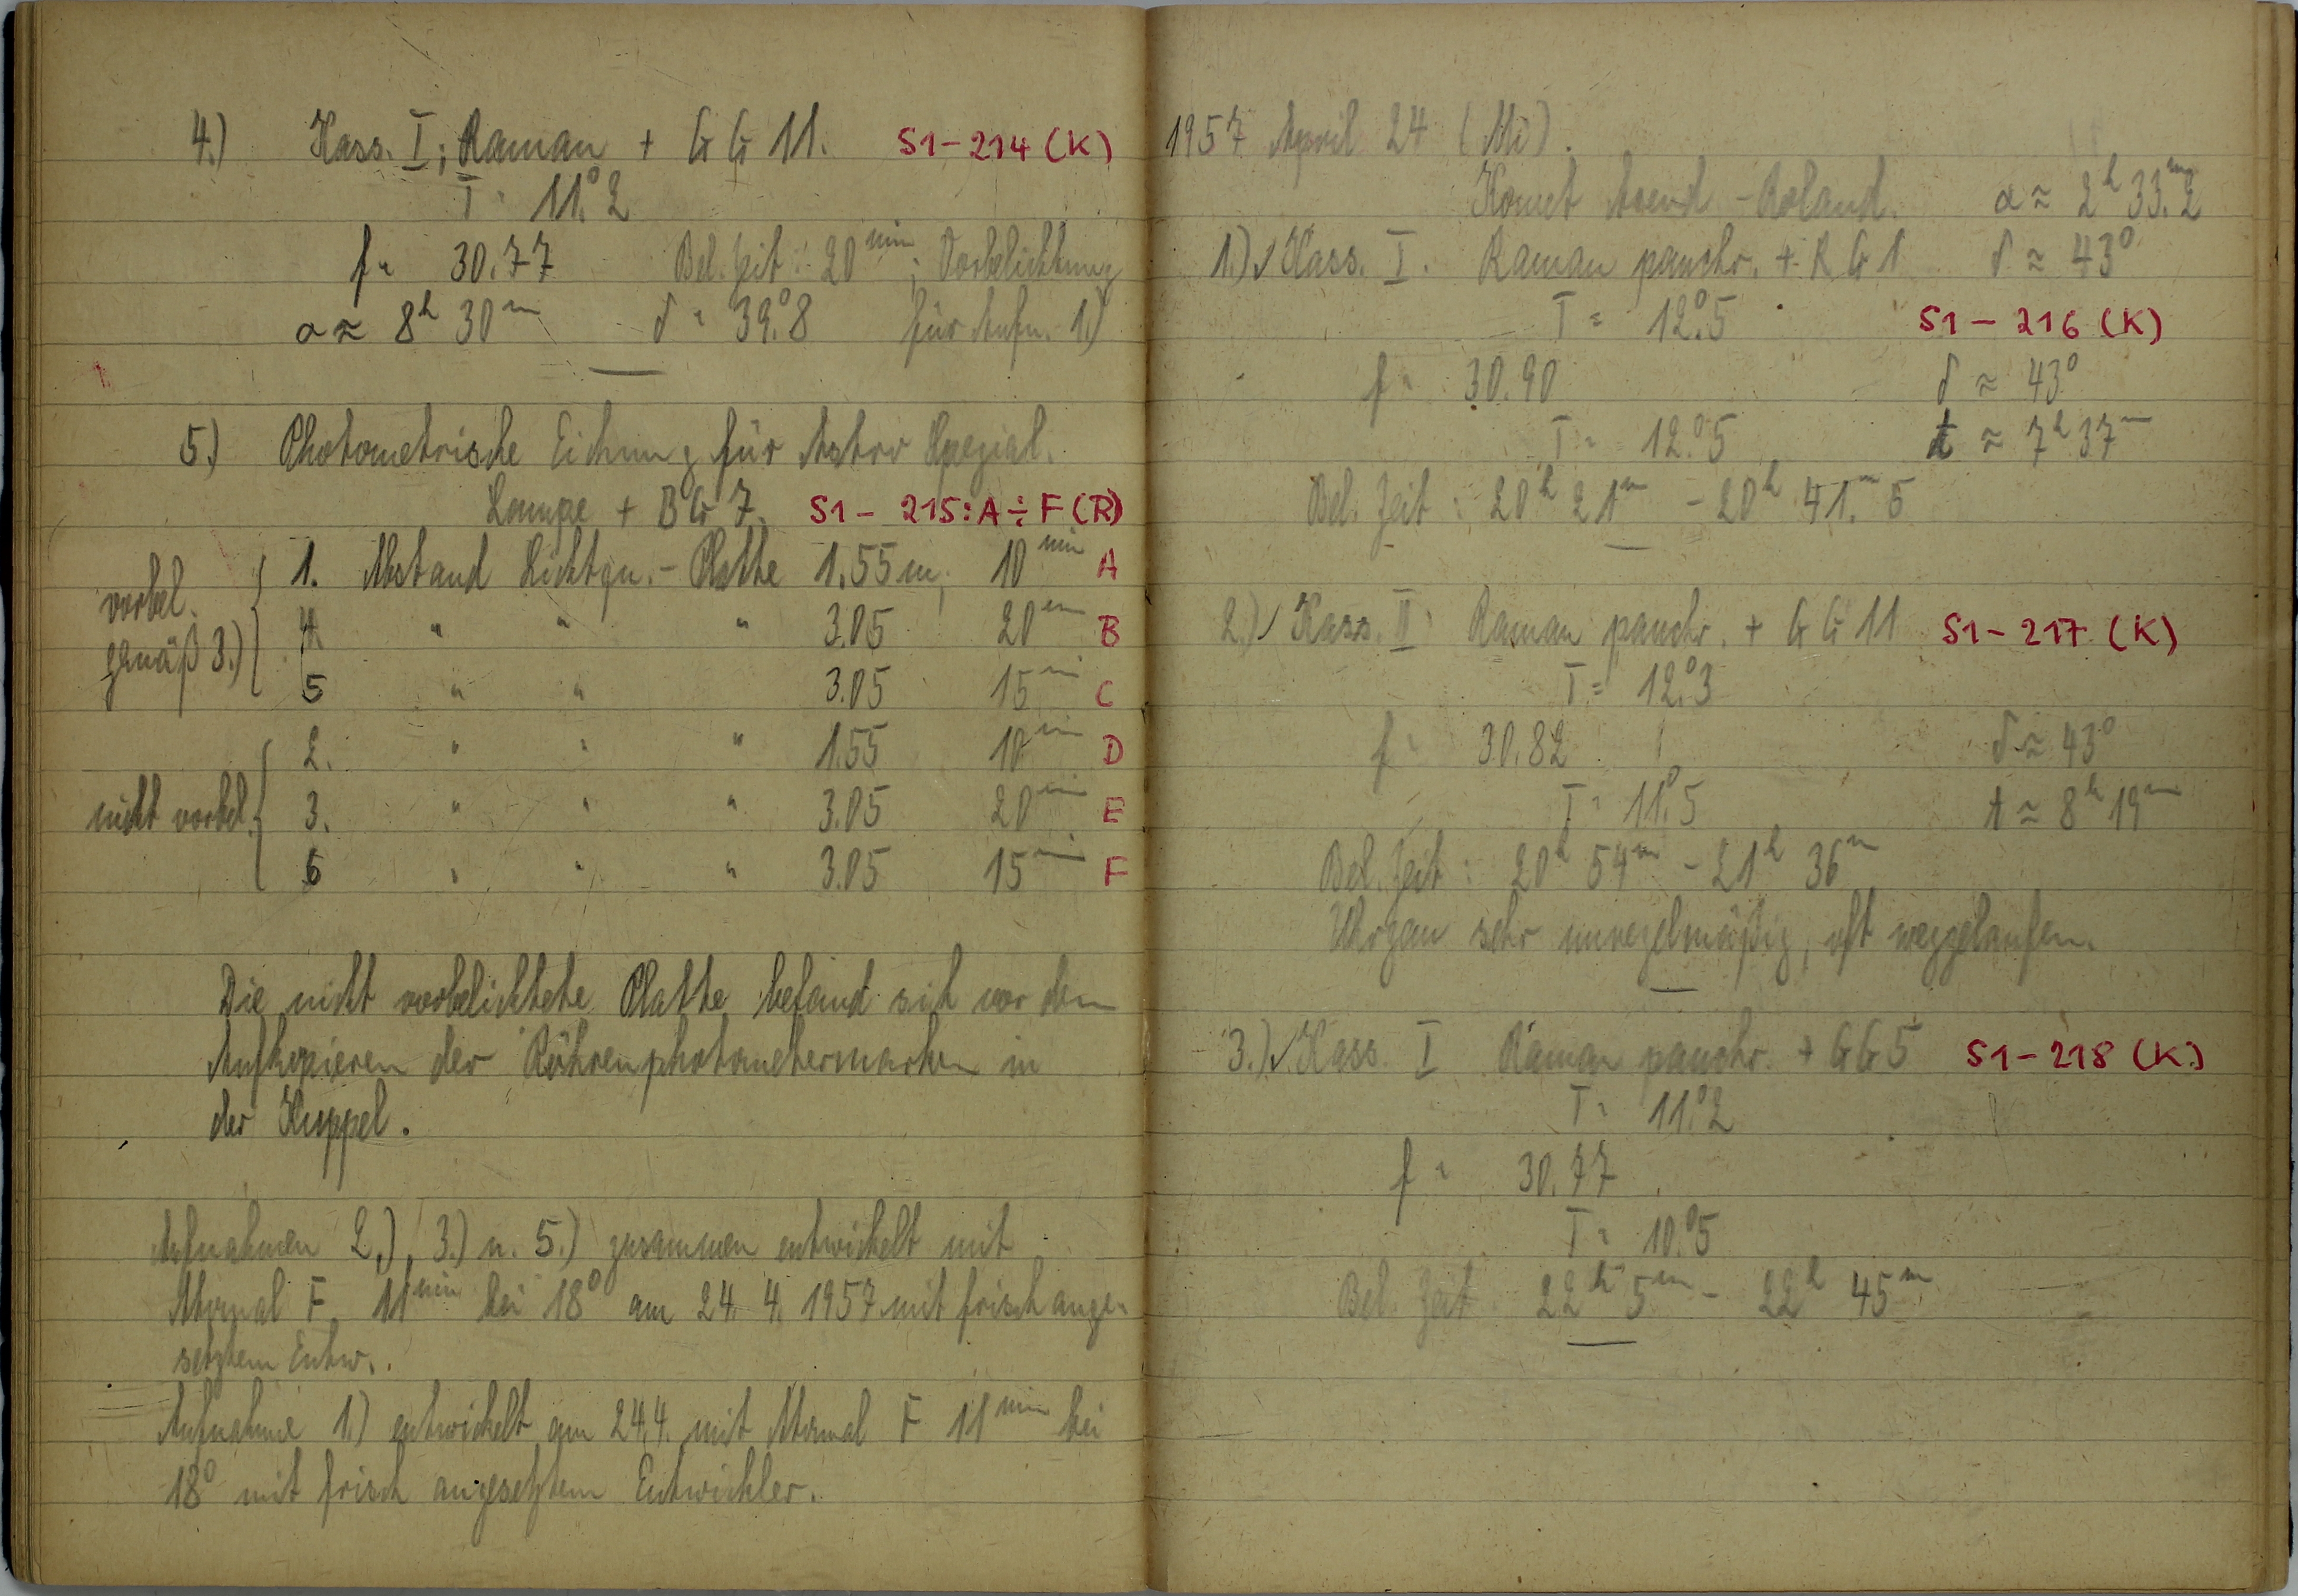 4.) Kass. I; Raman + GG 11. S1-214 (K)
T = 11°.2
f = 30.77 Bel. Zeit: 20 min; Vorbelichtung
α ≈ 8h 30m δ = 39°.8 für Aufn. 1.)
5.) Photometrische Eichung für Astro Spezial.
Lampe + BG 7. S1- 215: A ÷ F (R)
vorbel. gemäß 3.)
1. Abstand Lichtqu. - Platte 1.55 m, 10 min A
4. " " " 3.05 20 m B
5 " " 3.05 15 m C
nicht vorbel.
2. " " " 1.55 10 m D
3. " " " 3.05 20 m E
6 " " " 3.05 15 m F
Die nicht vorbelichtete Platte befand sich vor dem
Aufkopieren der Röhrenphotometermarken in
der Kuppel.
Aufnahmen 2.), 3.) u. 5.) zusammen entwickelt mit
F 11 min bei 18° am 24. 4. 1957 mit frisch ange-
setztem Entw..
Aufnahme 1.) entwickelt am 24.4. mit F 11 min bei
18° mit frisch angesetztem Entwickler.
1957 April 24 (Mi).
Komet Arend - Roland. α ≈ 2h 33m.2
1.) ✓ Kass. I. Raman panchr. + RG 1 δ ≈ 43°
T = 12°.5 S1 - 216 (K)
f = 30.90 δ ≈ 43°
T = 12°.5 t ≈ 7h 37m
Bel. Zeit: 20h 21m - 20h 41m.5
2.) ✓ Kass. II: Raman panchr. + GG 11 S1-217 (K)
T = 12°.3
f = 30.82 δ ≈ 43°
T = 11°.5 t ≈ 8h 19m
Bel. Zeit: 20h 54m - 21h 36m
sehr unregelmäßig, oft weggelaufen.
3.) ✓ Kass. I Raman panchr. + GG 5 S1-218 (K)
T = 11°.2
f = 30.77
T = 10°.5
Bel. Zeit 22h 5m - 22h 45m